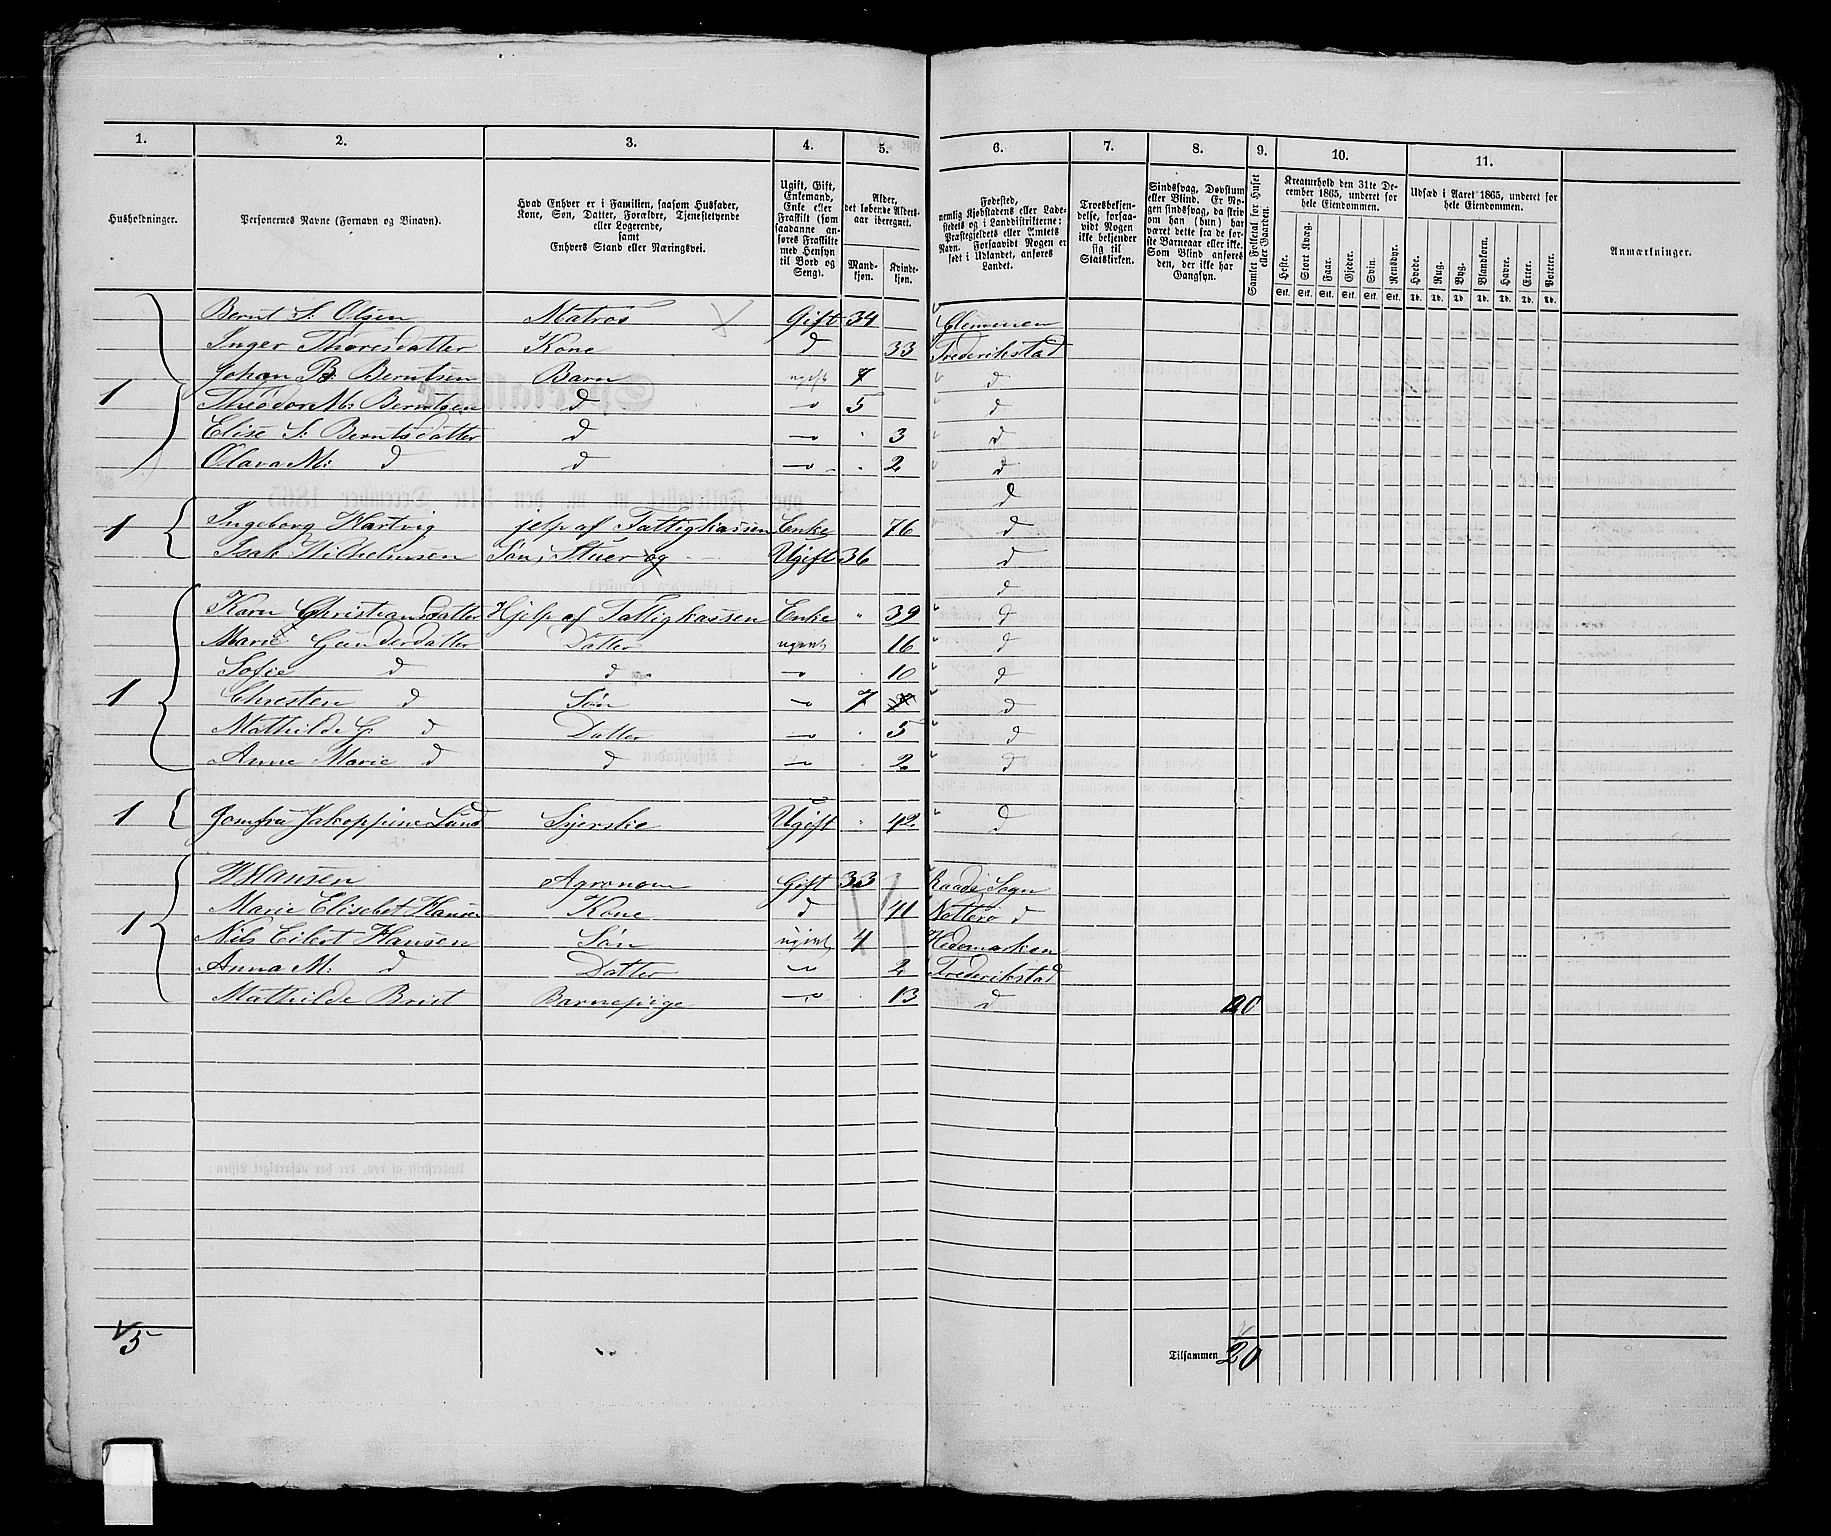 1. 2. 3. 4. 5. 6. 7. 8. 9. 10. 11.
Husholdninger.
Personernes Navne (Fornavn og Binavn).
Hvad Enhver er i Familien, saasom Husfader,
Kone, Søn, Datter, Forældre, Tjenestetyende
eller Logerende,
samt
Enhvers Stand eller Næringsvei.
Ugift, Gift,
Enkemand,
Enke eller
Fraskilt (som
saadanne an-
føres Fraskilte
med Hensyn
til Bord og
Seng).
Alder,
det løbende Alders-
aar iberegnet.
Mand-
kjøn.
Kvinde-
kjøn.
Fødested,
nemlig Kjøbstadens eller Lade-
stedets og i Landdistrikterne:
Præstegjeldets eller Amtets
Navn. Forsaavidt Nogen er
født i Udlandet, anføres
Landet.
Troesbekjen-
delse, forsaa-
vidt Nogen
ikke bekjender
sig til
Statskirken.
Sindssvag, Døvstum
eller Blind. Er No-
gen sindssvag, da skriv
om han (hun) har
været dette fra de før-
ste Barneaar eller ikke.
Som Blind anføres
den, der ikke har
Gangsyn.
Samlet Folketal for Huset
eller Gaarden.
Kreaturhold den 31te De-
cember 1865, underet for
hele Eiendommen.
Heste. Stort Kvæg. Faar. Gjeder. Svin. Rensdyr.
Stk. Stk. Stk. Stk. Stk. Stk.
Udsæd i Aaret 1865, underet for
hele Eiendommen.
Hvede. Rug. Byg. Blandkorn. Havre. Erter. Poteter.
Td. Td. Td. Td. Td. Td. Td.
Anmærkninger.
Bernt S. Olsen Matros Gift 34 Glemmen
Inger Thoresdatter Kone d 33 Frederikstad
Johan B Berntsen Barn ugift 7 d
1 Theodor M: Berntsen d 5 d
Elise S: Berntsdatter d 3 d
Olava M: d d 2 d
d
1 Ingeborg Hartvig hjelp af Fattigkassen Enke 76 d
Isak Wilhelmsen Søn, Stuer og Ugift 36 d
d
Karn Christiansdatter Hjelp af Fattigkassen Enke 39 d
Marie Gundersdatter Datter ugivt 16 d
Sofie d d 10 d
1 Chresten d Søn 7 7 d
Mathilde G. d Datter 5 d
Anne Marie d d 2 d
1 Jomfru Jakoppine Lund Syerske Ugift 42 d
H Hansen Agronom Gift 33 Raade Sogn
Marie Elisebet Hansen Kone d 41 Nøtterø d
1 Nils Eibert Hansen Søn ugivt 4 Hedemarken
Anna M: d Datter 2 Frederikstad
Mathilde Brist Barnepige 13 d 20
5
Tilsammen 20